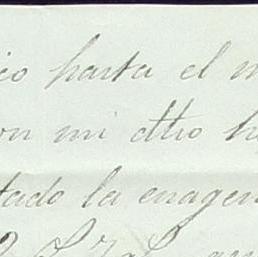 io hasta el m
on mi dho h
tado la enagen